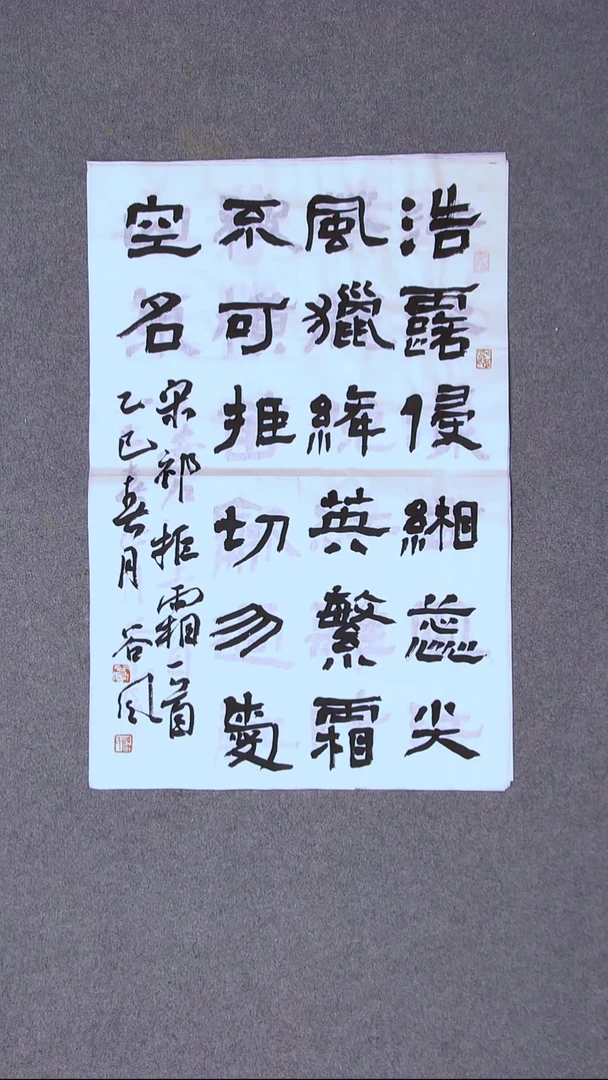 浩露侵緗蕊尖
風獵絳英繁霜
不可拒切勿愛
空名
宋祁拒霜一首
乙巳春月谷风